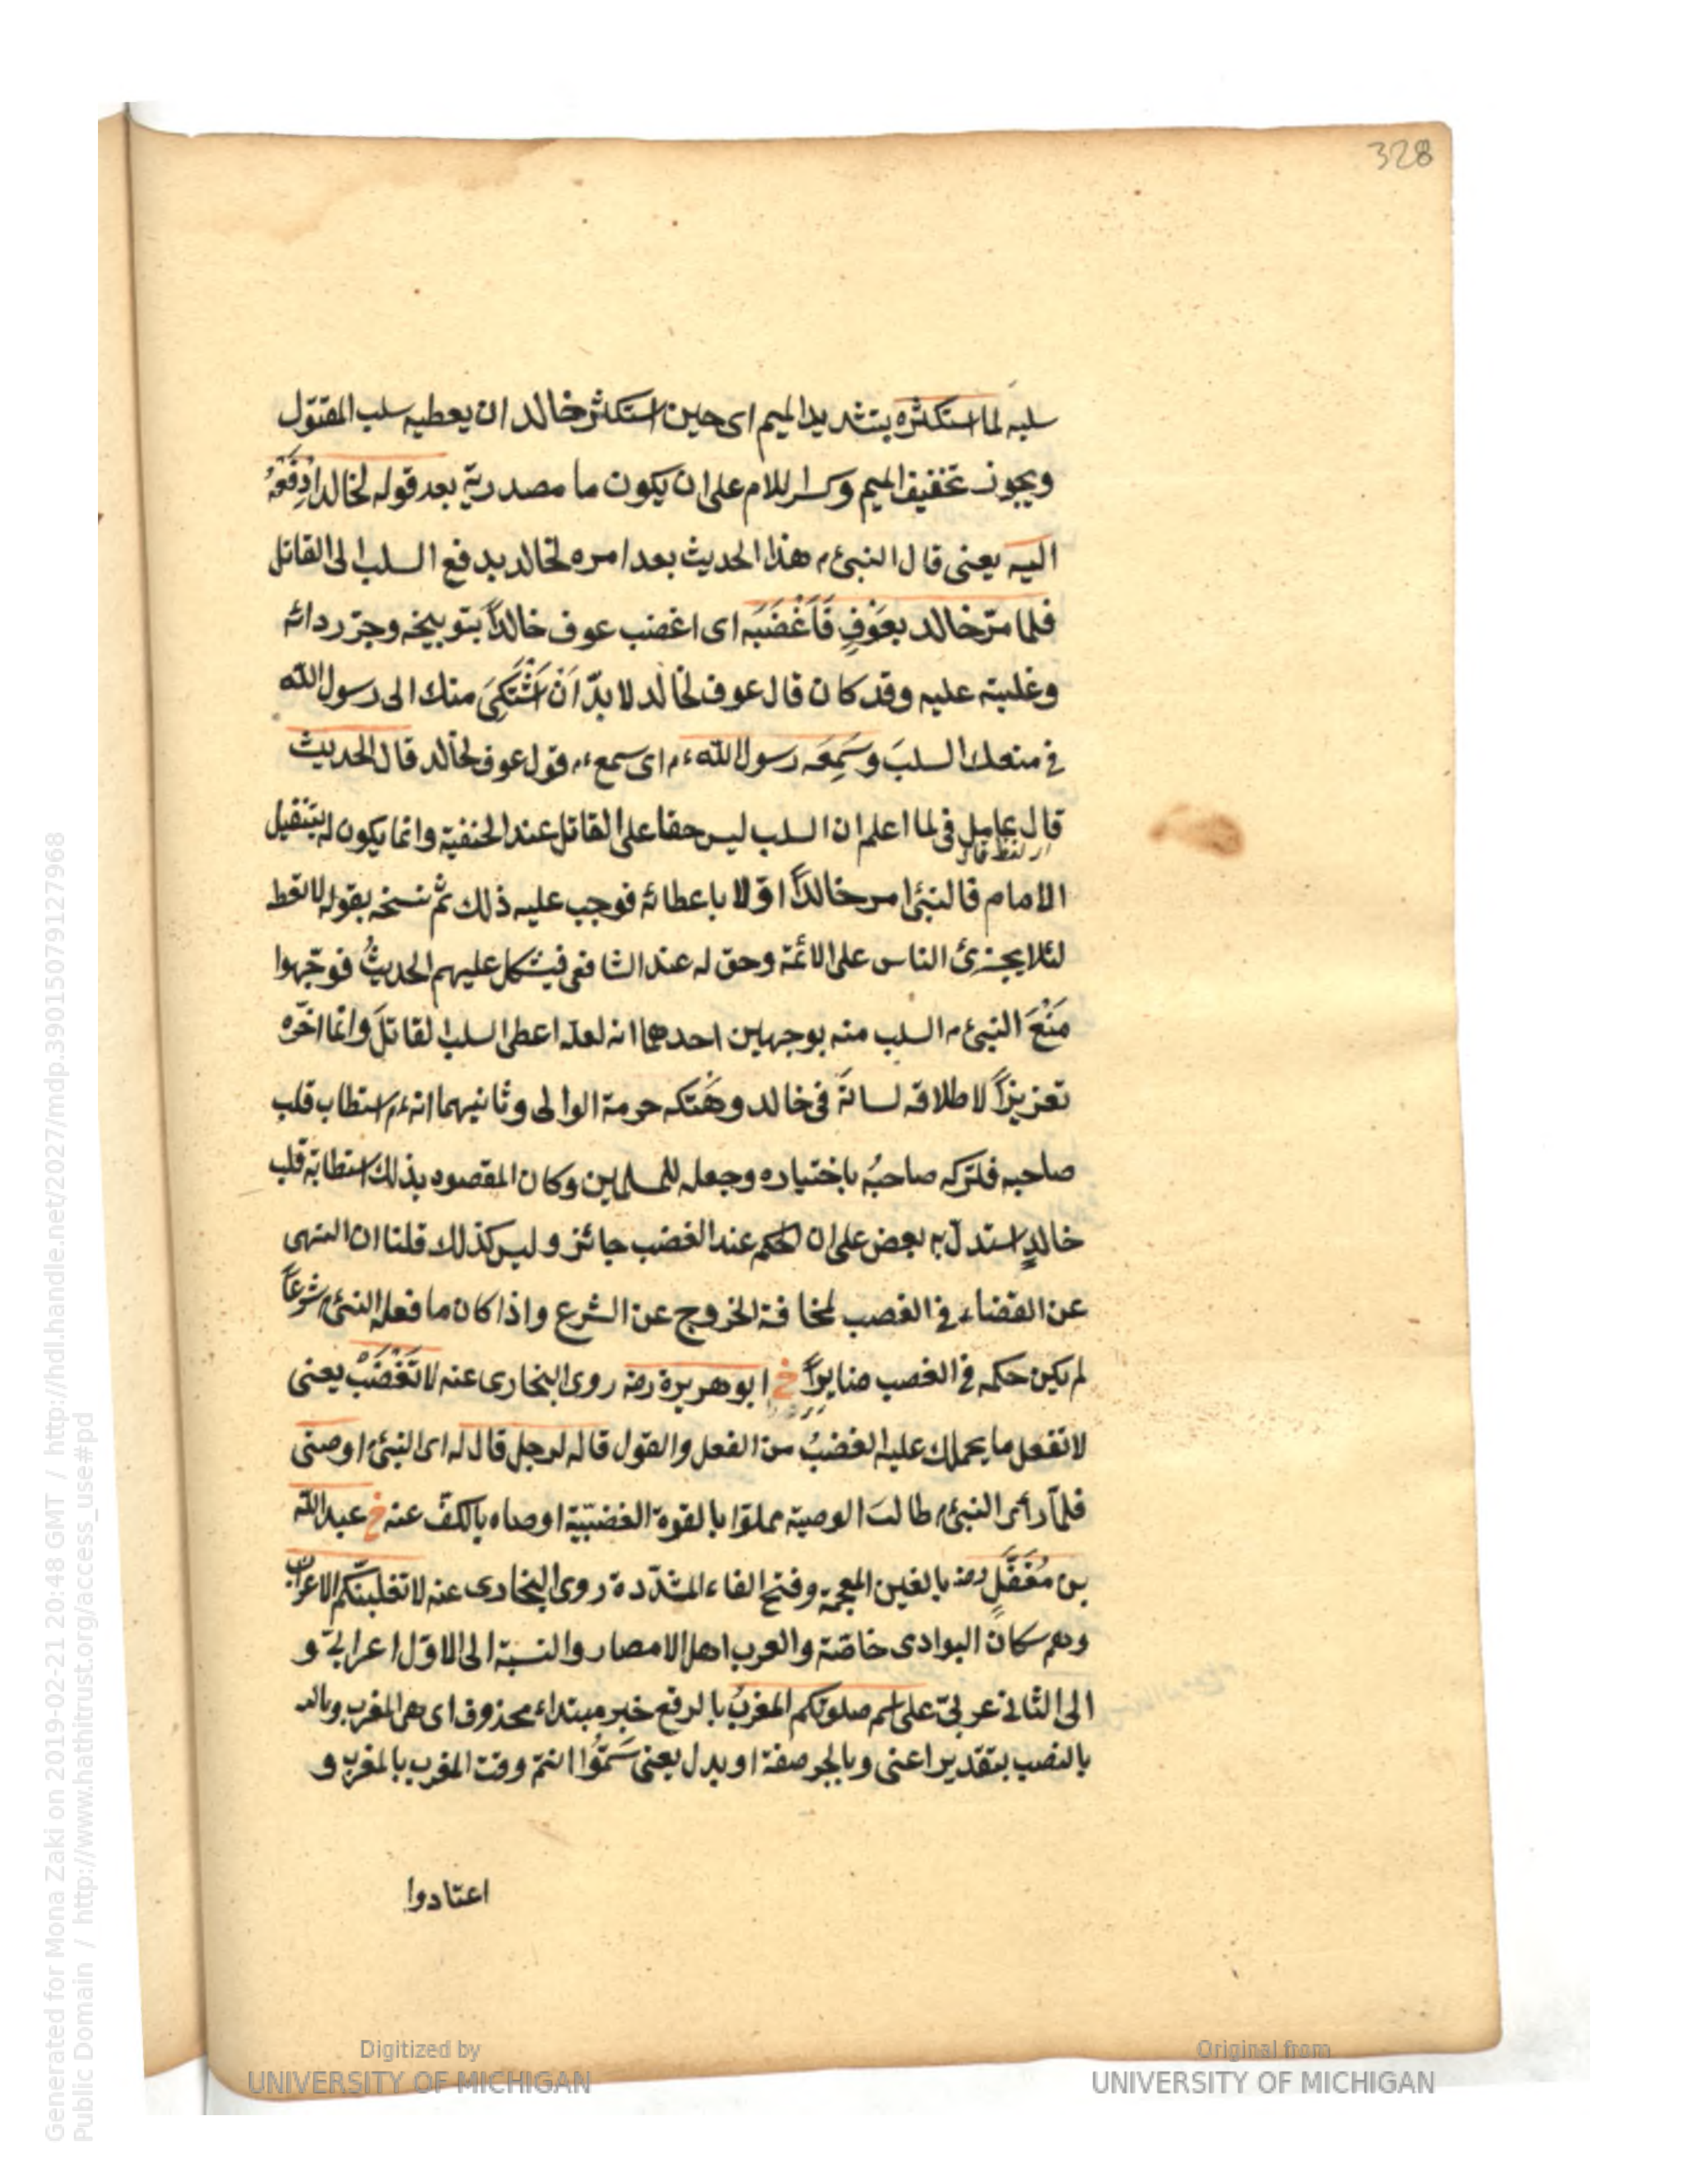 328
سلبه لما استكثره بتشديد الميم اى حين استكثر خالد ان يعطيه سلب المقتول
ويجوز تخفيف الميم وكسر اللام على ان يكون ما مصدرية بعد قوله لخالد ادْفَعْهُ
اليه يعنى قال النبىء م هذا الحديث بعد امره لخالد بدفع السلب الى القاتل
فلما مرّ خالد بعَوْفٍ فَأَغْضَبَه اى اغضب عوف خالدًا بتوبيخه وجرّ ردائه
وغلبته عليه وقد كان قال عوف لخالد لا بدّ اَنْ اَشْتَكِىَ منك الى رسول الله
فى منعك السلبَ وسَمِعَه رسول الله ءم اى سمع ءم قول عوف لخالد قال الحديث
قال عامل فى لما اعلم ان السلب ليس حقا على القاتل عند الحنفية وانما يكون له بتنفيل
لفظ قال
الامام فالنبىء امر خالدًا اوّلا باعطائه فوجب عليه ذلك ثم نسخه بقوله لا تعط
لئلا يجترئ الناس على الائمة وحق له عند الشافعى فيشكل عليهم الحديثُ فوجّهوا
مَنْعَ النبىء م السلب منه بوجهين احدهما انه لعله اعطى السلب لقاتلَ وانما اخّره
تعزيزًا لاطلاقه لسانَهَ فى خالد وهَتكه حرمة الوالى وثانيهما انه ءم استطاب قلب
صاحبه فلتركه صاحبُه باختياره وجعله للمسلمين وكان المقصود بذلك استطابة قلب
خالدٍ استدل به بعض على ان الحكم عند الغضب جائز وليس كذلك قلنا ان النهى
عن القضاء فى الغصب لمخافة الخروج عن الشرع واذا كان ما فعله النبىء م شرعًا
لم يكن حكمه فى الغصب منايرًا خ ابو هريرة رضه روى البخارى عنه لا تَغْضَبْ يعنى
لا تفعل ما يحملك عليه الغضبُ من الفعل والقول قاله لرجل قال له اى النبىء م اوصنى
فلمّا رأى النبىء م طالبَ الوصية مملوّا بالقوة الغضبيّة اوصاه بالكفّ عنه خ عبد الله
بن مُغَفَّلٍ رضه بالغين المعجمة وفتح الفاء المشدّدة روى البخارى عنه لا تغلبنّكم الاعراب
وهم سكان البوادى خاصّة والعرب اهل الامصار والنسبة الى الاوّل اعرابىّ و
الى الثانى عربىّ على اسم صلوتكم المغربُ بالرفع خبر مبتداء محذوف اى هى المغرب
بالنصب بتقدير اعنى وبالجر صفة او بدل يعنى سَمَّوُا انتم وقت المغرب بالمغرب و
اعتادوا
Digitized by
UNIVERSITY OF MICHIGAN
Original from
UNIVERSITY OF MICHIGAN
Generated for Mona Zaki on 2019-02-21 20:48 GMT / http://hdl.handle.net/2027/mdp.39015079127968
Public Domain / http://www.hathitrust.org/access_use#pd